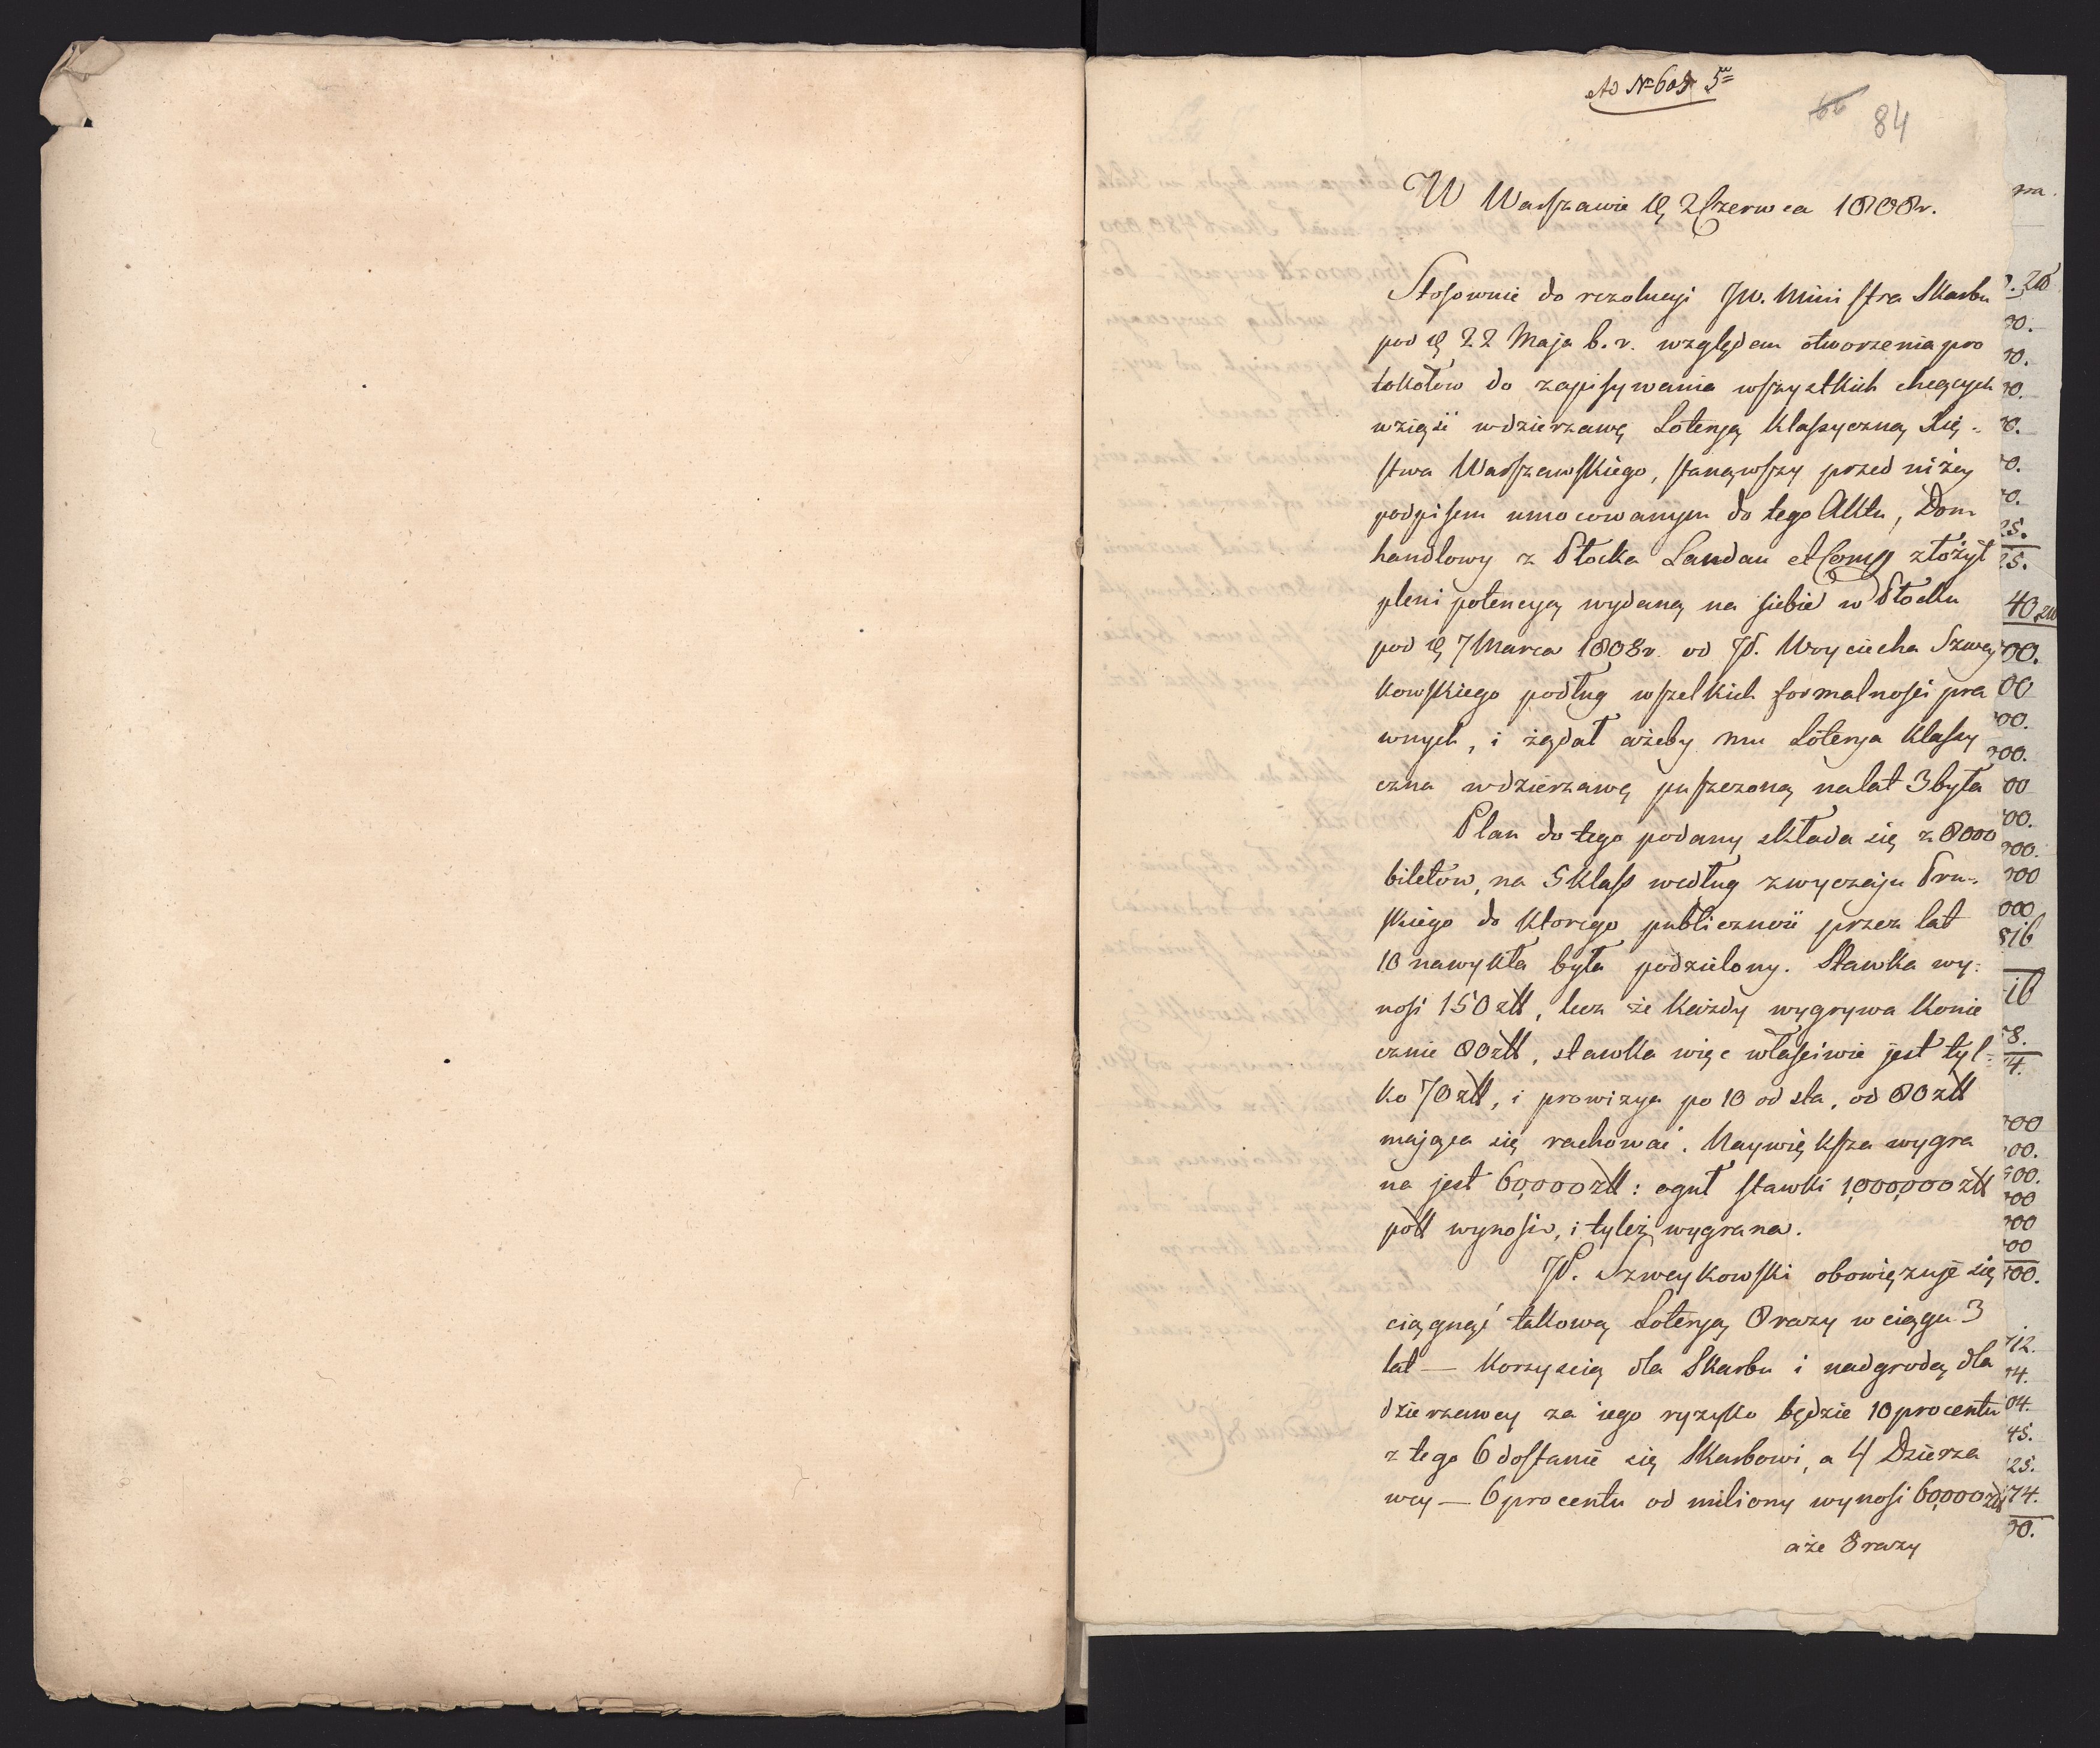 Ad Nº 608 5
66 84
W Warszawie d. 2 Czerwca 1808 r.
Stosownie do rezolucyi JW. Ministra Skarbu
pod d. 22 Maja b. r. względem otworzenia pro
tokołow do zapisywania wszystkich chcących
wziąść w dzierzawę Loteryą Klassyczną Xię-
stwa Warszawskiego, stanąwszy przed niżey
podpisem umocowanym do tego Aktu, Dom
handlowy z Płocka Landau et Comp złożył
plenipotencyą wydaną na siebie w Płocku
pod d. 7 Marca 1808 r. od JP. Woyciecha Szwey
kowskiego podług wszelkich formalności pra
wnych, i żądał ażeby mu Loterya Klassy
czna w dzierzawę puszczoną na lat 3 była
Plan do tego podany składa się z 8000
biletow, na 5 Klass według zwyczaju Pru-
skiego do ktorego publiczność przez lat
10 nawykła była podzielony. Stawka wy-
nosi 150 złł, lecz że każdy wygrywa konie
cznie 80 złł, stawka więc właściwie jest tyl-
ko 70 złł, i prowizya po 10 od sta, od 80 złł
mająca się rachować. Naywiększa wygra
na jest 60,000 złł: oguł stawki 1,000,000 złł
poll wynosi, i tyleż wygrana.
JP. Szweykowski obowięzuje się
ciągnąć takową Loteryą 8 razy w ciągu 3
lat — Korzyscią dla Skarbu i nadgrodą dla
dzierzawcy za iego ryzyko będzie 10 procentu
z tego 6 dostanie się Skarbowi, a 4 Dzierza
wcy — 6 procentu od miliony wynosi 60,000 złł
aże 8 razy